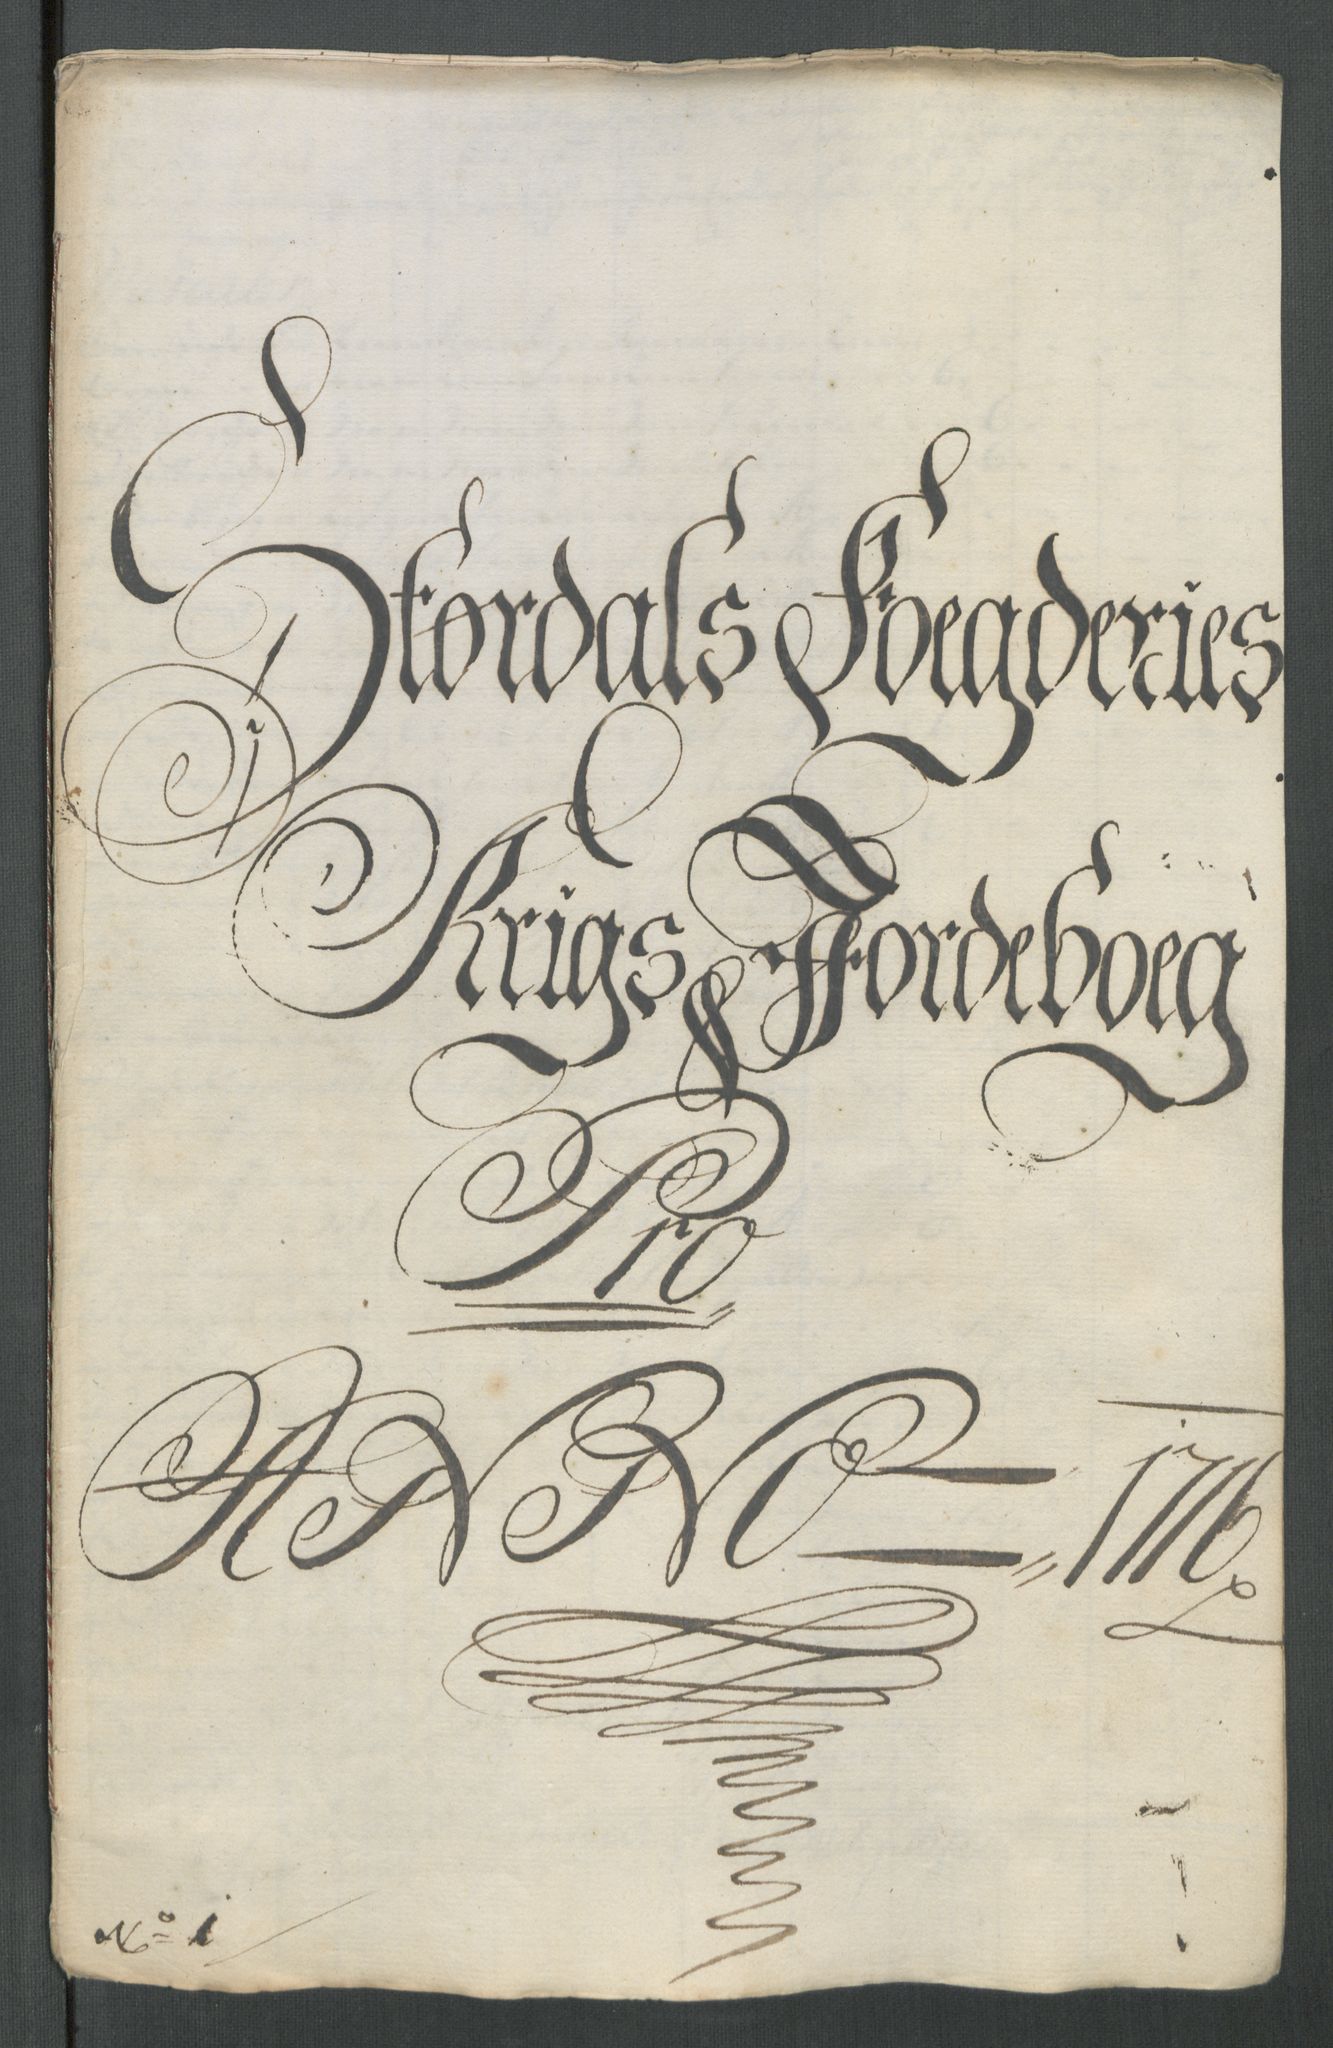 Stördals Foegderies
Krigs Jordeboeg
Pro
ANNO 1716
No 1